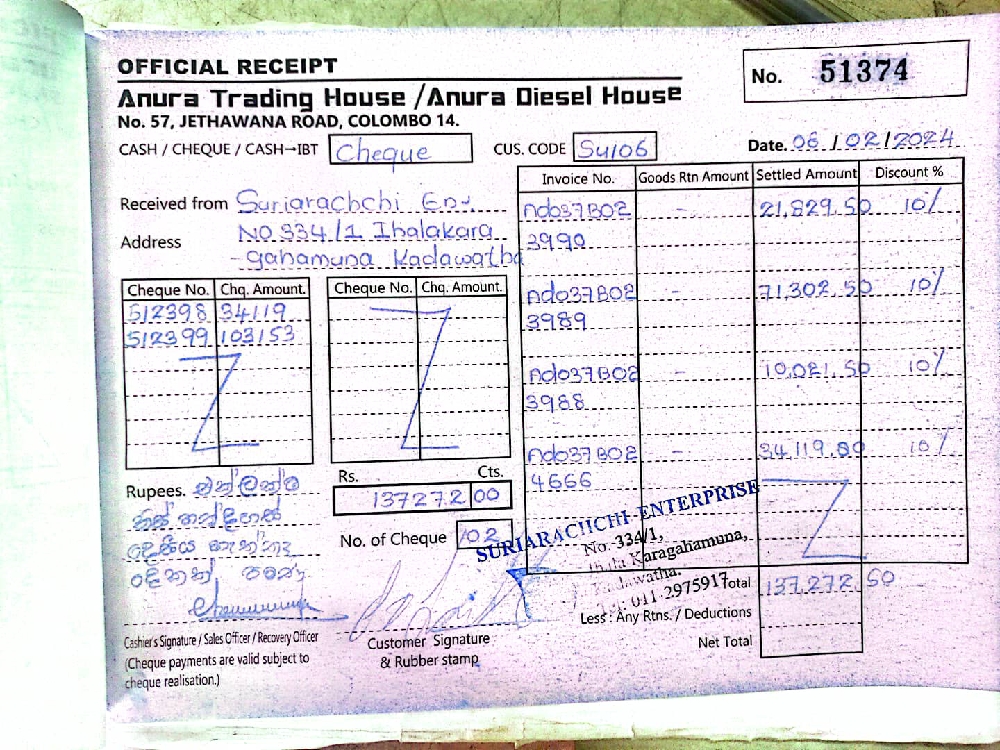 OFFICIAL RECEIPT
No. 51374
Anura Trading House / Anura Diesel House
No. 57, JETHAWANA ROAD, COLOMBO 14.
CASH / CHEQUE / CASH→IBT Cheque
CUS. CODE Su106
Date. 06 / 02 / 2024
Received from Suriarachchi Ent.
Address No 334/1 Ihalakara
-gahamuna Kadawatha
Cheque No. Chq. Amount.
512398 34119
512399 103153
Cheque No. Chq. Amount.
Invoice No. Goods Rtn Amount Settled Amount Discount %
ndo37B02 - 21,829.50 10%
3990
ndo37B02 - 71,302.50 10%
3989
ndo37B02 - 10,021.50 10%
3988
ndo37B02 - 34,119.80 10%
4666
Rupees. එක්ලක්ෂ
තිස් හත්දහස්
දෙසීය හැත්තෑ
දෙකක් පමණ
Rs. Cts.
137272 00
No. of Cheque 02
SURIARACHCHI ENTERPRISE
No. 334/1,
Ihala Karagahamuna,
Kadawatha.
011-2975917
Total 137,272.50
Less : Any Rtns. / Deductions
Net Total
Cashier's Signature / Sales Officer / Recovery Officer
(Cheque payments are valid subject to
cheque realisation.)
Customer Signature
& Rubber stamp